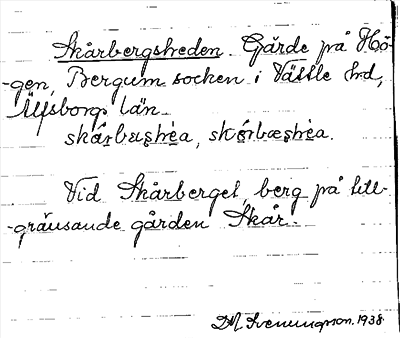 Skårbergsheden. Gärde på Hö-
-gen, Bergum socken i Vättle hd,
Älfsborgs län.
skårbæs̥hèa, skórbæs̥hèa.
Vid Skårberget, berg på till-
-gränsande gården Skår.
D.M. Svenungsson. 1938